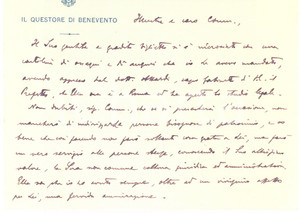 IL QUESTORE DI BENEVENTO
Illustre e caro Comm.,
Il Suo gentile e gradito biglietto si è incrociato con una
cartolina di auguri che io Le avevo mandato,
avendo appreso dal dott. capo Gabinetto di
Prefetto, che Ella era a Roma ed ha aperto lo studio legale.
Non dubiti, Comm., che se si presenterà l'occasione, non
mancherò di indirizzarLe persone bisognose di patrocinio, e so
bene che così facendo non farò soltanto cosa grata a Lei, ma farò
un vero servizio alle persone stesse, conoscendo il Suo altissimo
valore, la Sua non comune coltura giuridica ed amministrativa.
Ella sa che io Le sempre, oltre ad un vivissimo affetto
per Lei, una fervida ammirazione.